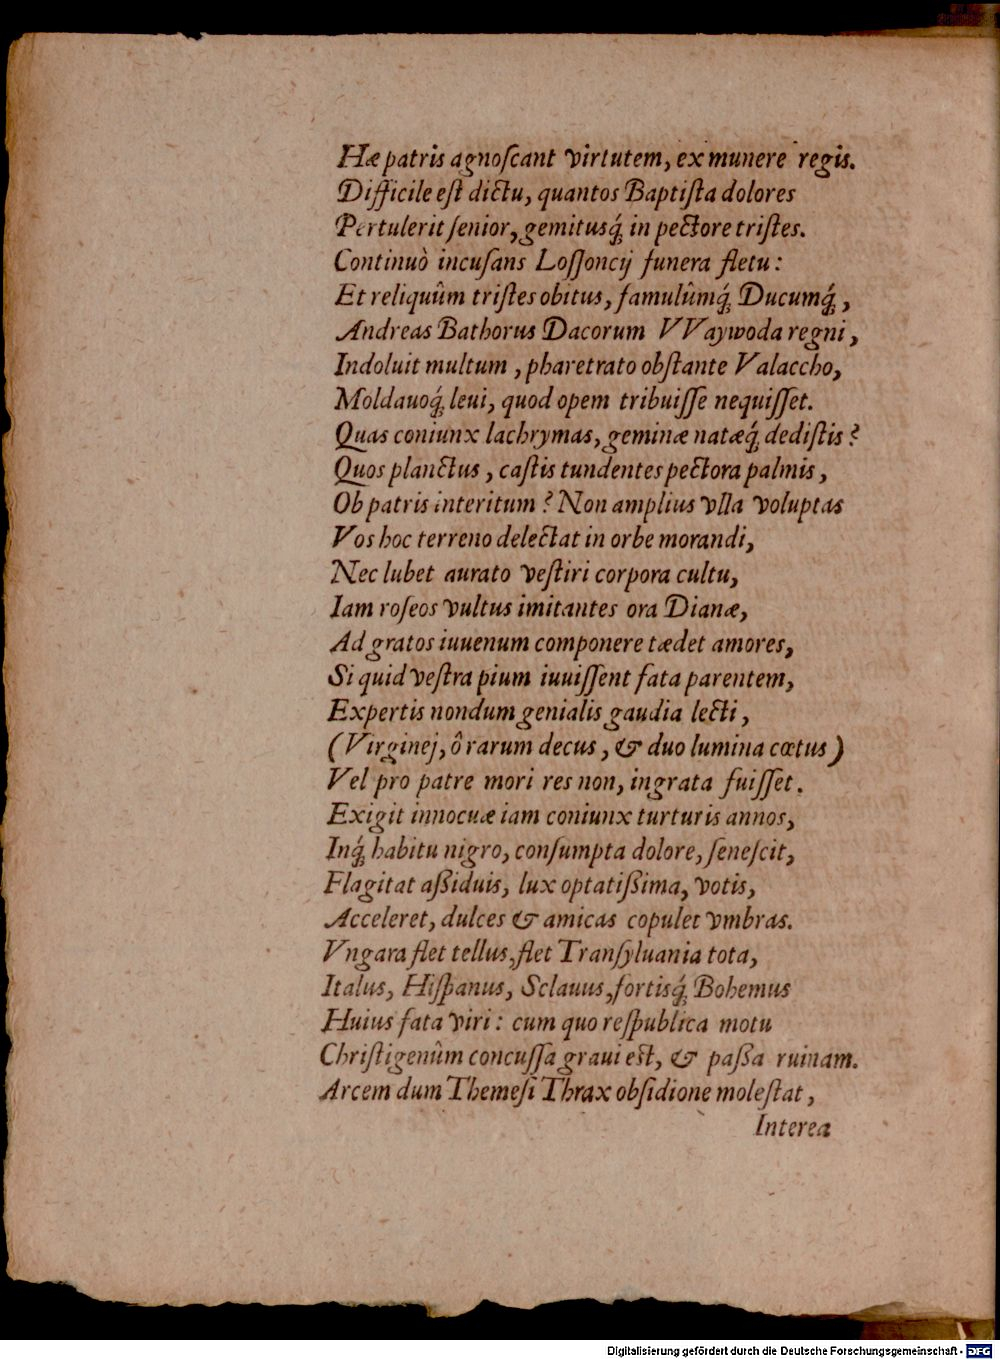 Hæ patris agnoſcant virtutem, ex munere regis.
Difficile eſt dictu, quantos Baptiſta dolores
Pertulerit ſenior, gemitusq́ꝫ in pectore triſtes.
Continuò incuſans Loſſoncij funera fletu:
Et reliquûm triſtes obitus, famulûmq́ꝫ Ducumq́ꝫ,
Andreas Bathorus Dacorum VVaywoda regni,
Indoluit multum, pharetrato obſtante Valaccho,
Moldauoq́ꝫ leui, quod opem tribuiſſe nequiſſet.
Quas coniunx lachrymas, geminæ natæq́ꝫ dediſtis?
Quos planctus, caſtis tundentes pectora palmis,
Ob patris interitum? Non amplius vlla voluptas
Vos hoc terreno delectat in orbe morandi,
Nec lubet aurato veſtiri corpora cultu,
Iam roſeos vultus imitantes ora Dianæ,
Ad gratos iuuenum componere tædet amores,
Si quid veſtra pium iuuiſſent fata parentem,
Expertis nondum genialis gaudia lecti,
(Virginej, ô rarum decus, & duo lumina cœtus)
Vel pro patre mori res non, ingrata fuiſſet.
Exigit innocuæ iam coniunx turturis annos,
Inq́ꝫ habitu nigro, conſumpta dolore, ſeneſcit,
Flagitat aßiduis, lux optatißima, votis,
Acceleret, dulces & amicas copulet vmbras.
Vngara flet tellus, flet Tranſyluania tota,
Italus, Hiſpanus, Sclauus, fortisq́ꝫ Bohemus
Huius fata viri: cum quo reſpublica motu
Chriſtigenûm concuſſa graui eſt, & paßa ruinam.
Arcem dum Themeſi Thrax obſidione moleſtat,
Interea
Digitalisierung gefördert durch die Deutsche Forschungsgemeinschaft - DFG